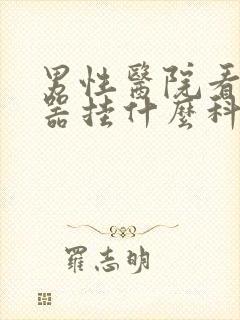 男性醫院看
器挂什麼科
羅志明